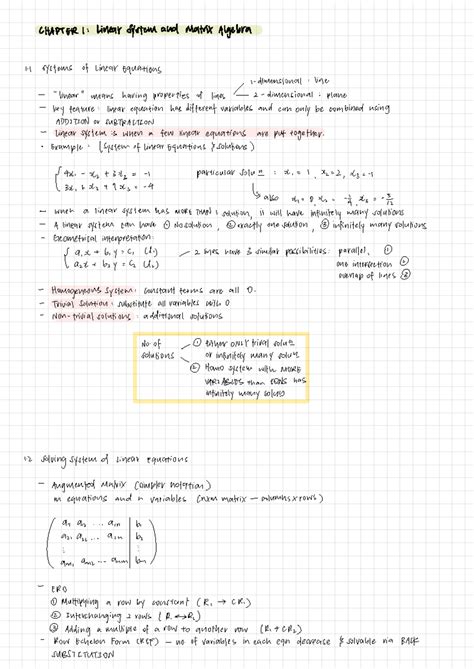 CHAPTER 1: Linear System and Matrix Algebra
1.1 Systems of Linear Equations
1-dimensional : line
- "linear" means having properties of lines 2-dimensional : plane
- key feature: linear equation has different variables and can only be combined using
ADDITION or SUBTRACTION
- Linear system is when a few linear equations are put together.
- Example: (System of Linear Equations & solutions)
4x₁ - x₂ + 3x₃ = -1 particular solu : x₁ = 1, x₂ = 2, x₃ = -1
3x₁ + x₂ + 9x₃ = -4
also x₁ = 0
- When a linear system has MORE THAN 1 solution, it will have infinitely many solutions
- A linear system can have ① No solution, ② exactly one solution, ③ infinitely many solutions
- Geometrical interpretation:
a₁x + b₁y = c₁ (l₁) 2 lines have 3 similar possibilities: parallel, ①
a₂x + b₂y = c₂ (l₂) one intersection ②
overlap of lines ③
- Homogeneous System: constant terms are all 0.
- Trivial Solution: substitute all variables with 0
- Non-trivial solutions: additional solutions
No. of solutions
① Either ONLY trivial solutn
or infinitely many solutn
② Homo system with MORE
VARIABLES than ROWS has
infinitely many solutn
1.2 Solving System of Linear Equations
- Augmented Matrix (simpler notation)
m equations and n variables (nxm matrix – columns x rows)
a₁ a₂ ... a₁n | b₁
a₂₁ a₂₂ ... a₂n | b₂
⋮
am₁ am₂ ... amn | bm
- ERO
① Multiplying a row by constant (R₁ → CR₁)
② Interchanging 2 rows (R₁ ↔ R₂)
③ Adding a multiple of a row to another row (R₁ + CR₂)
- Row Echelon Form (REF) – no. of variables in each eqn decrease & solvable via BACK
SUBSTITUTION